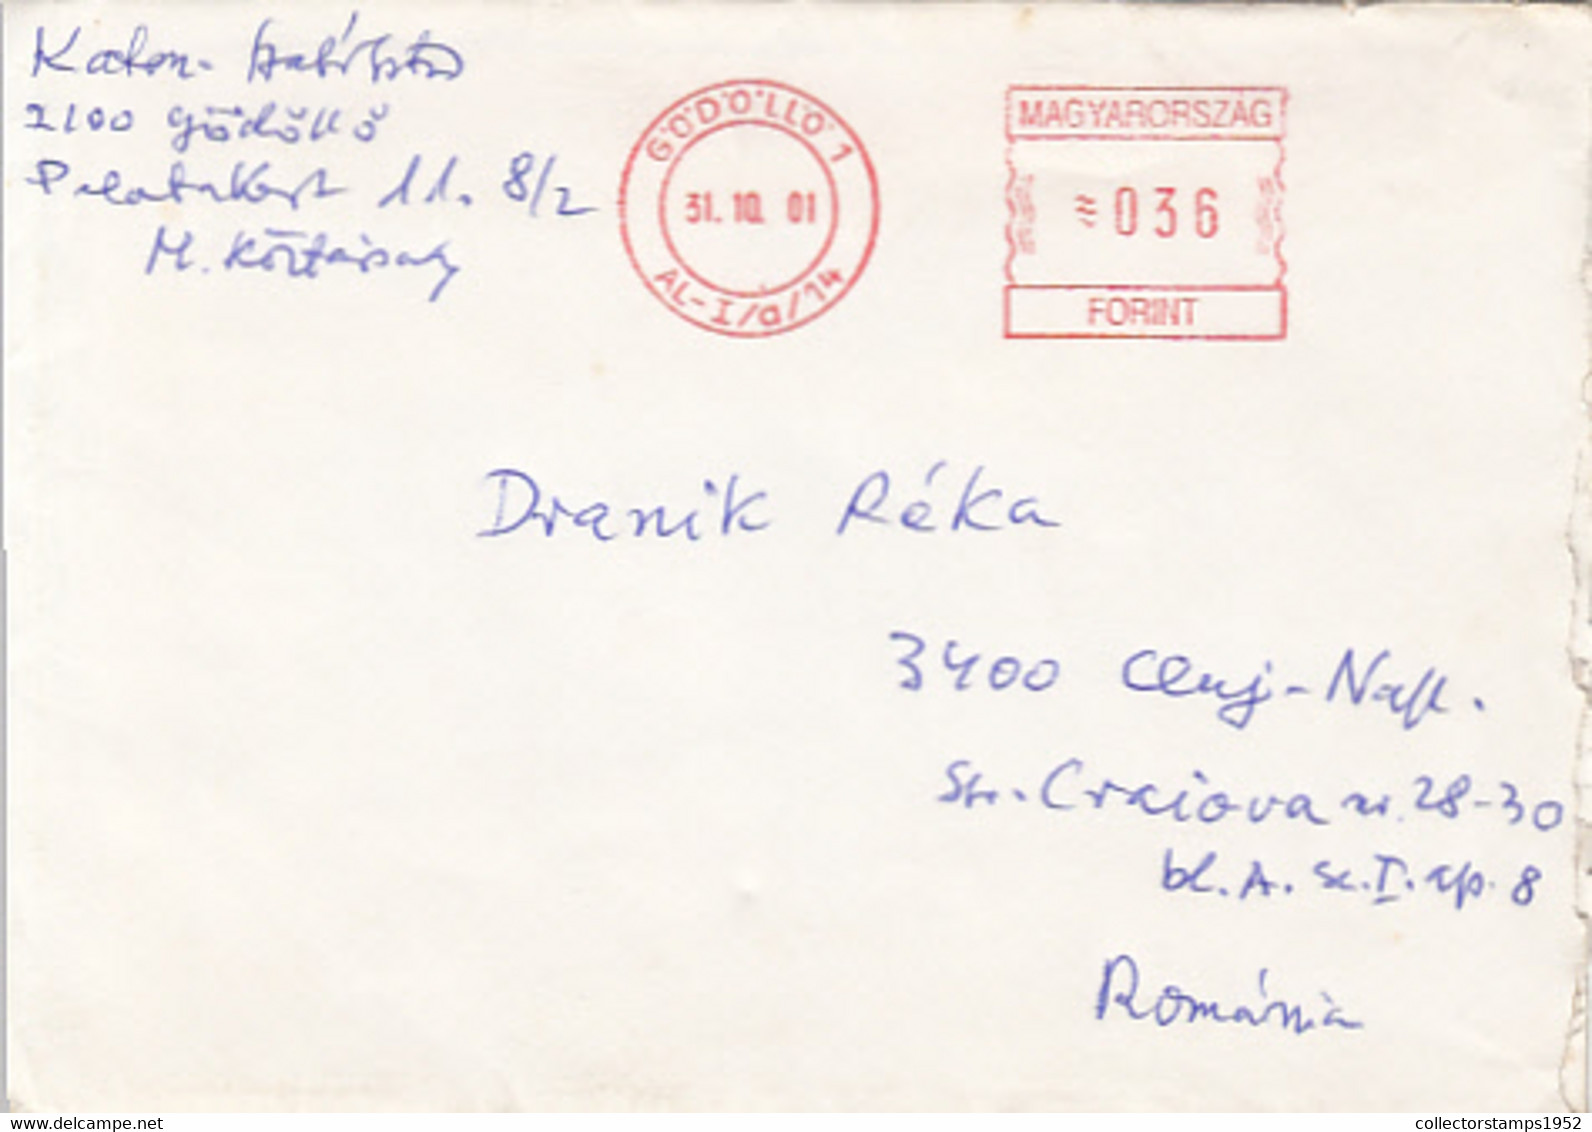 Katon-
2100 Gödöllő
Palotakert 11. 8/2
M. Köztársaság
GÖDÖLLŐ 1
31. 10. 01
AL-I/a/14
MAGYARORSZÁG
≈036
FORINT
Dranik Réka
3400 Cluj-Nap.
Str. Craiova nr. 28-30
bl. A. Sc. I. ap. 8
Románia
delcampe.net
collectorstamps1952